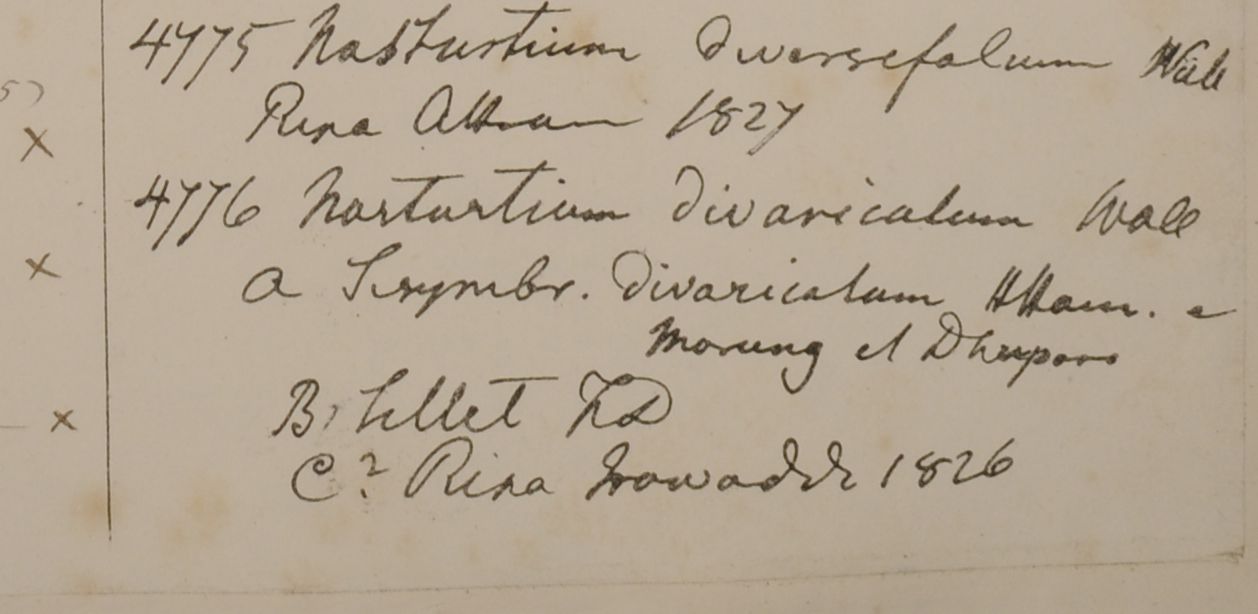 4775 Nasturtium diversifolium Wall
Ripa Attran 1827
4776 Nasturtium divaricatum Wall
a Sisymbr. divaricatum HHam. e
Morung et
B, Sillet FD
C? Ripa Irawaddi 1826